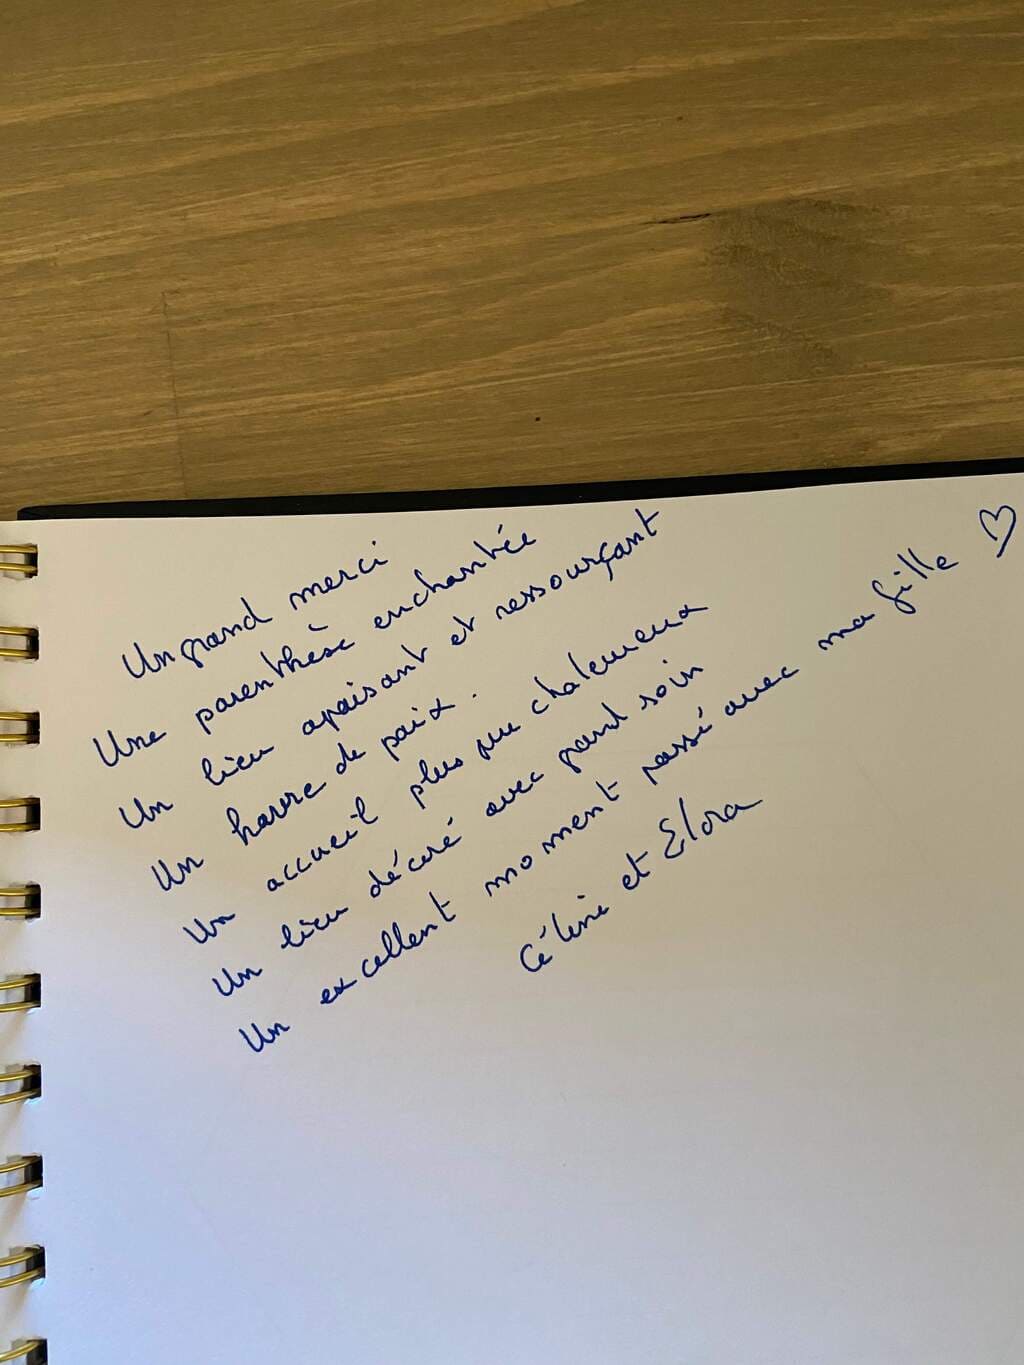 Un grand merci
Une parenthèse enchantée
Un lieu apaisant et ressourçant
Un havre de paix.
Un accueil plus que chaleureux
Un lieu décoré avec grand soin
Un excellent moment passé avec ma fille ♡
Céline et Elora